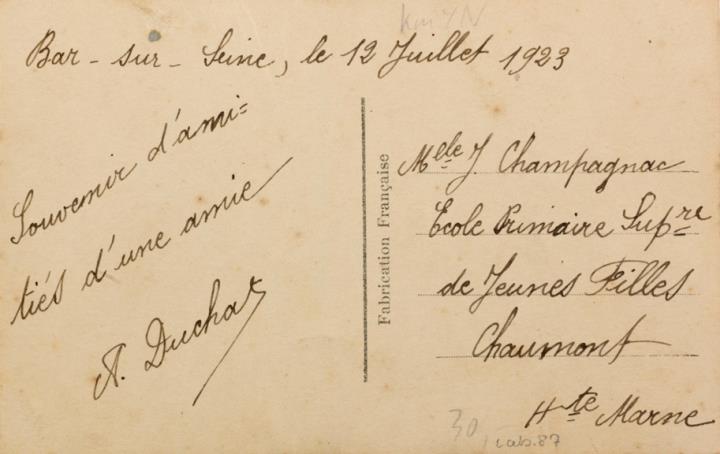 Bar-sur-Seine, le 12 Juillet 1923
Souvenir d'ami=
tiés d'une amie
A. Duchat
Fabrication Française
Melle J. Champagnac
Ecole Primaire Supre
de Jeunes Filles
Chaumont
Hte Marne
30